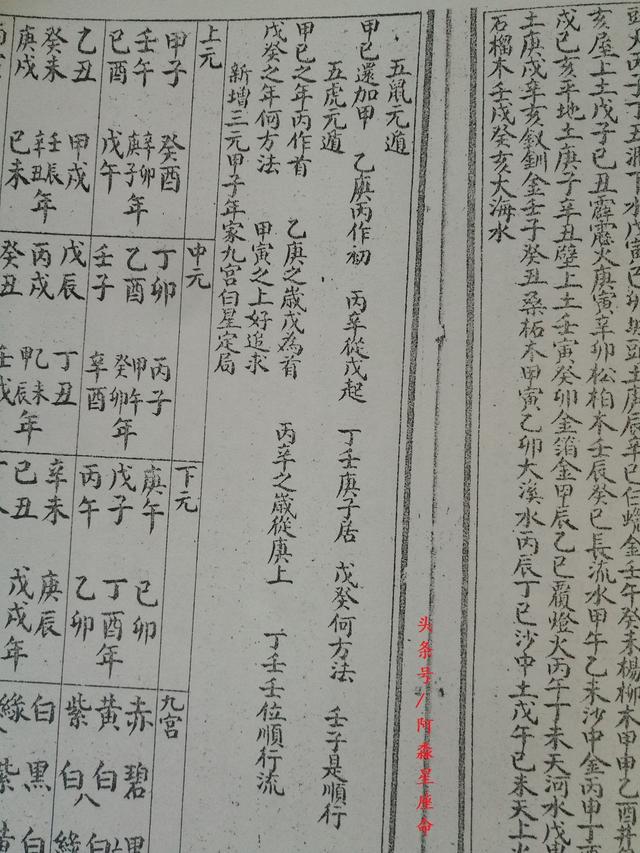 頭火丙丁丁丑澗下水戊寅己卯城頭土庚辰辛巳蠟金壬午癸未楊柳木甲甲乙酉井
亥屋上土戊子己丑霹靂火庚寅辛卯松柏木壬辰癸巳長流水甲午乙未沙中金丙申丁
戌己亥平地土庚子辛丑壁上土壬寅癸卯金箔金甲辰乙巳覆燈火丙午丁未天河水戊
土庚戌辛亥釵釧金壬子癸丑桑柘木甲寅乙卯大溪水丙辰丁巳沙中土戊午己未天上
石榴木壬戌癸亥大海水
五鼠元遁
甲己還加甲 乙庚丙作初 丙辛從戊起 丁壬庚子居 戊癸何方法 壬子是順行
五虎元遁
甲己之年丙作首 乙庚之歲戊為首 丙辛之歲從庚上 丁壬壬位順行流
戊癸之年何方法 甲寅之上好追求
新增三元甲子年家九宮白星定局
上元 中元 下元 九宮
甲子 癸酉 丁卯 丙子 庚午 己卯 赤碧
壬午 辛卯 庚子年 乙酉 甲午 癸卯年 戊子 丁酉年 黃白八
己酉 戊午 壬子 辛酉 丙午 乙卯 紫白綠
乙丑 甲戌 戊辰 丁丑 辛未 庚辰 白黑白
癸未 壬辰 辛丑年 丙戌 乙未 甲辰年 己丑 戊戌年 綠紫黃
庚戌 己未 癸丑 壬戌
头条号/阿淼星座命